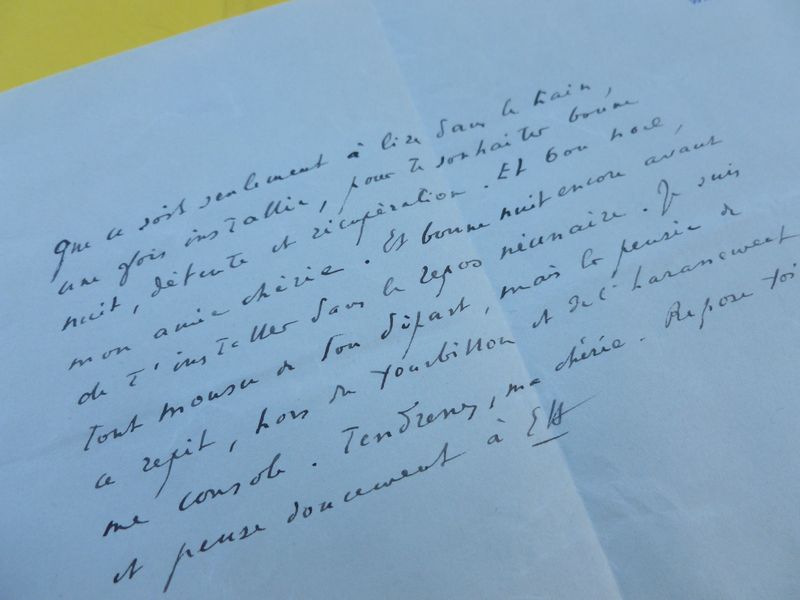 Que ce soit seulement à lire dans le train,
une fois installée, pour te souhaiter bonne
nuit, détente et récupération. Et bon noël,
mon amie chérie. Et bonne nuit encore avant
de t'installer dans le repos nécessaire. Je suis
tout mousu de ton départ, mais la pensée de
ce répit, hors du tourbillon et de l'harassement
me console. Tendresses, ma chérie. Repose toi
et pense doucement à